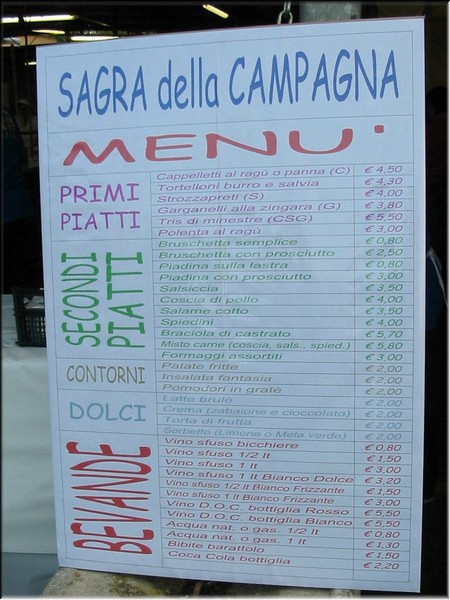 SAGRA della CAMPAGNA
MENU'
PRIMI PIATTI
Cappelletti al ragù o panna (C) € 4,50
Tortelloni burro e salvia € 4,30
Strozzapreti (S) € 4,00
Garganelli alla zingara (G) € 3,80
Tris di minestre (CSG) € 5,50
Polenta al ragù € 3,00
SECONDI PIATTI
Bruschetta semplice € 0,80
Bruschetta con prosciutto € 2,50
Piadina sulla lastra € 0,80
Piadina con prosciutto € 3,00
Salsiccia € 3,50
Coscia di pollo € 4,00
Salame cotto € 3,50
Spiedini € 4,00
Braciola di castrato € 5,70
Misto carne (coscia, sals., spied.) € 5,80
Formaggi assortiti € 3,00
CONTORNI
Patate fritte € 2,00
Insalata fantasia € 2,00
Pomodori in gratè € 2,00
DOLCI
Latte brulè € 2,00
Crema (zabaione e cioccolato) € 2,00
Torta di frutta € 2,00
Sorbetto (Limone o Mela verde) € 2,00
BEVANDE
Vino sfuso bicchiere € 0,80
Vino sfuso 1/2 lt € 1,50
Vino sfuso 1 lt € 3,00
Vino sfuso 1 lt Bianco Dolce € 3,20
Vino sfuso 1/2 lt Bianco Frizzante € 1,50
Vino sfuso 1 lt Bianco Frizzante € 3,00
Vino D.O.C. bottiglia Rosso € 5,50
Vino D.O.C. bottiglia Bianco € 5,50
Acqua nat. o gas. 1/2 lt € 0,80
Acqua nat. o gas. 1 lt € 1,30
Bibite barattolo € 1,50
Coca Cola bottiglia € 2,20